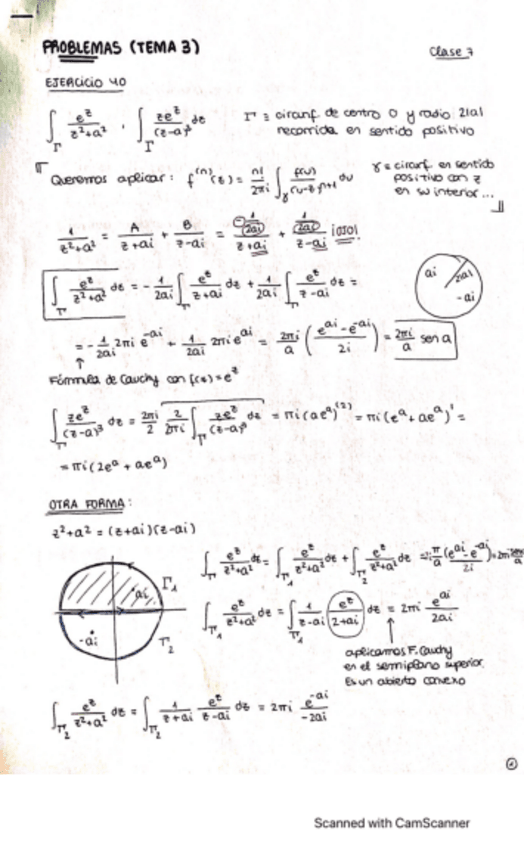 PROBLEMAS (TEMA 3)
Clase 7
EJERCICIO 40
∫_Γ e^z/(z²+a²) , ∫_Γ ze^z/(z-a)³ dz Γ ≡ circunf. de centro 0 y radio 2|a|
recorrida en sentido positivo
Queremos aplicar: f^(n)(z) = n!/2πi ∫_γ f(u)/(u-z)^(n+1) du γ ≡ circunf. en sentido
positivo con z
en su interior...
1/(z²+a²) = A/(z+ai) + B/(z-ai) = (-1/2ai)/(z+ai) + (1/2ai)/(z-ai) ¡OJO!
∫_Γ e^z/(z²+a²) dz = -1/2ai ∫_Γ e^z/(z+ai) dz + 1/2ai ∫_Γ e^z/(z-ai) dz =
ai
2|a|
-ai
= -1/2ai 2πi e^(-ai) + 1/2ai 2πi e^(ai) = 2πi/a ((e^(ai) - e^(-ai))/2i) = 2πi/a sen a
Fórmula de Cauchy con f(z)=e^z
∫_Γ ze^z/(z-a)³ dz = 2πi/2 2/2πi ∫_Γ ze^z/(z-a)³ dz = πi(ae^a)^(2) = πi(e^a + ae^a)' =
= πi(2e^a + ae^a)
OTRA FORMA:
z²+a² = (z+ai)(z-ai)
∫_Γ e^z/(z²+a²) dz = ∫_Γ1 e^z/(z²+a²) dz + ∫_Γ2 e^z/(z²+a²) dz
ai
Γ1
-ai
Γ2
∫_Γ1 e^z/(z²+a²) dz = ∫_Γ1 1/(z-ai) e^z/(z+ai) dz = 2πi e^(ai)/2ai
aplicamos F. Cauchy
en el semiplano superior.
Es un abierto convexo
∫_Γ2 e^z/(z²+a²) dz = ∫_Γ2 1/(z+ai) e^z/(z-ai) dz = 2πi e^(-ai)/-2ai
Scanned with CamScanner